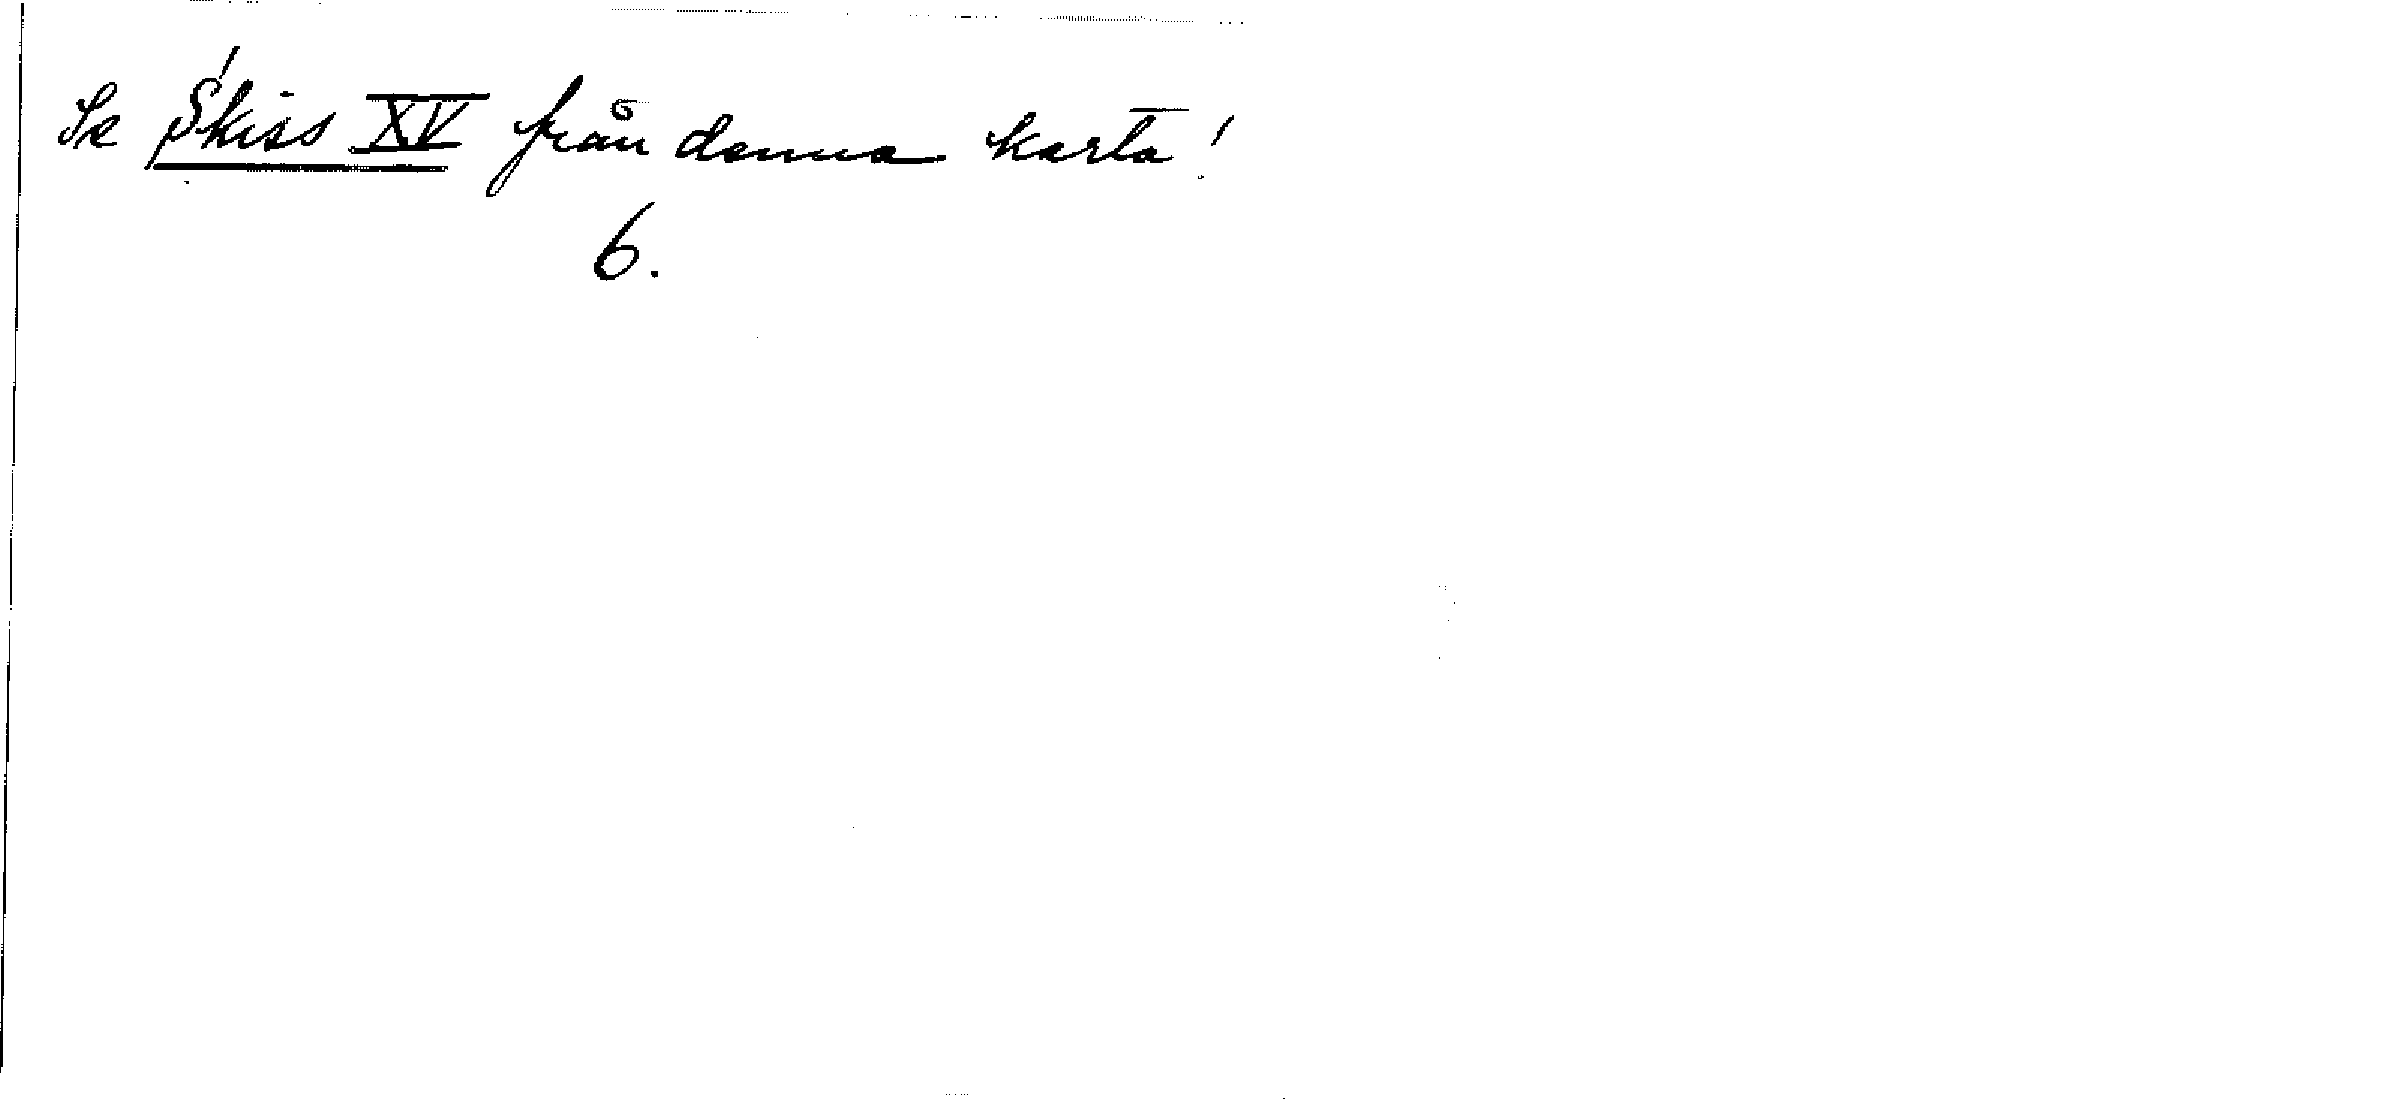 Se Skiss XV från denna karta!
6.